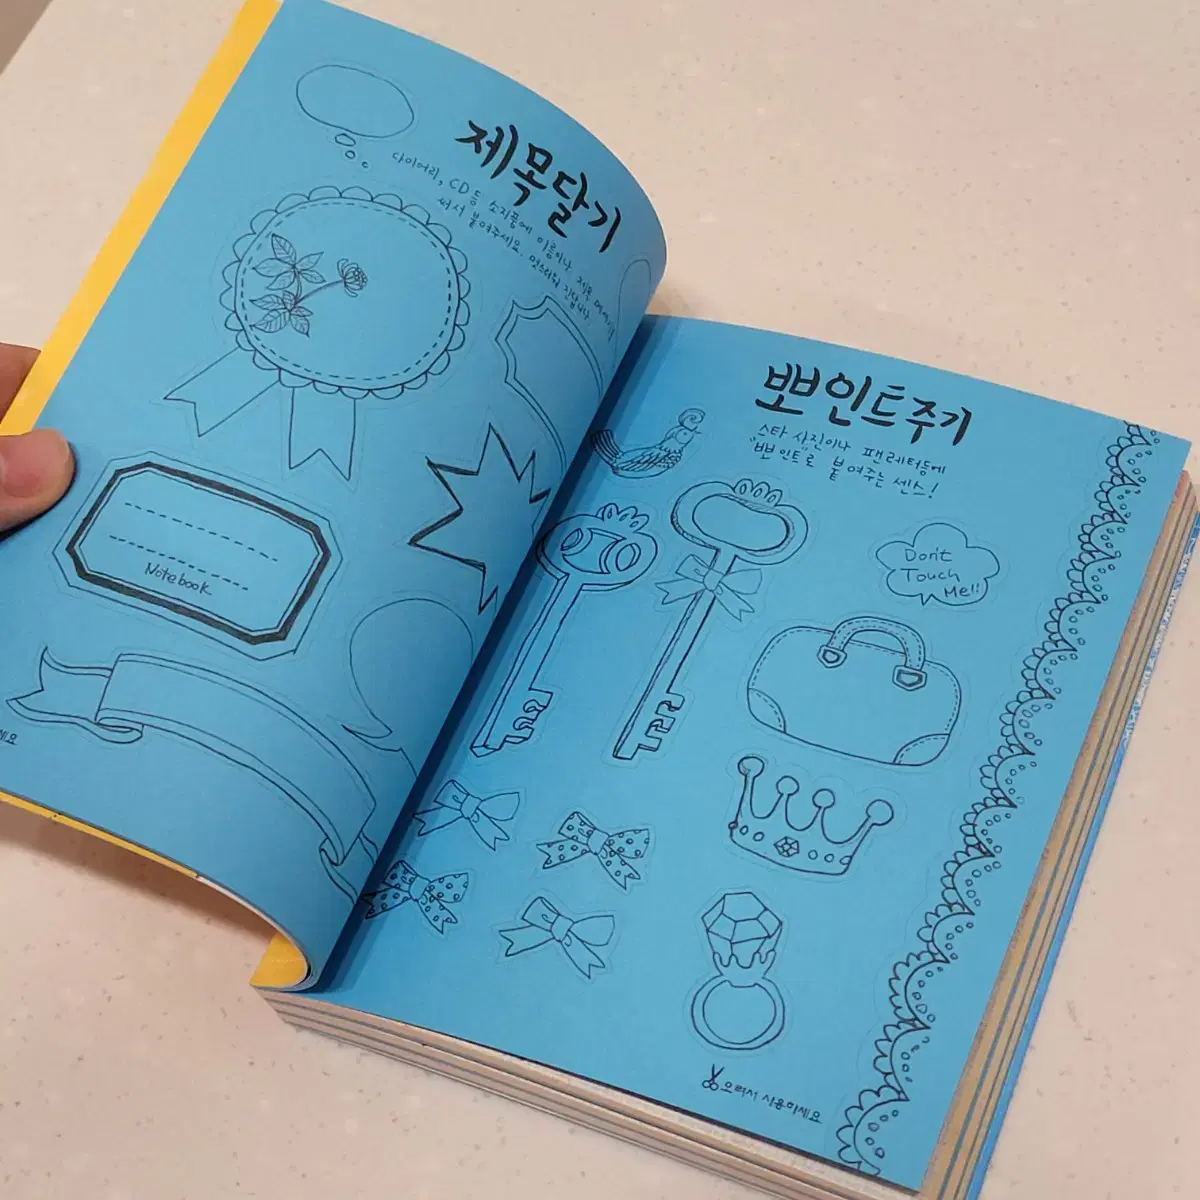 제목달기
다이어리, CD등 소지품에 이름이나 제목
써서 붙여주세요. 멋스러워 진답니다.
Notebook
세요
뽀인트주기
스타 사진이나 팬레터등에
"뽀인트"로 붙여주는 센스!
Don't
Touch
Me!!
오려서 사용하세요